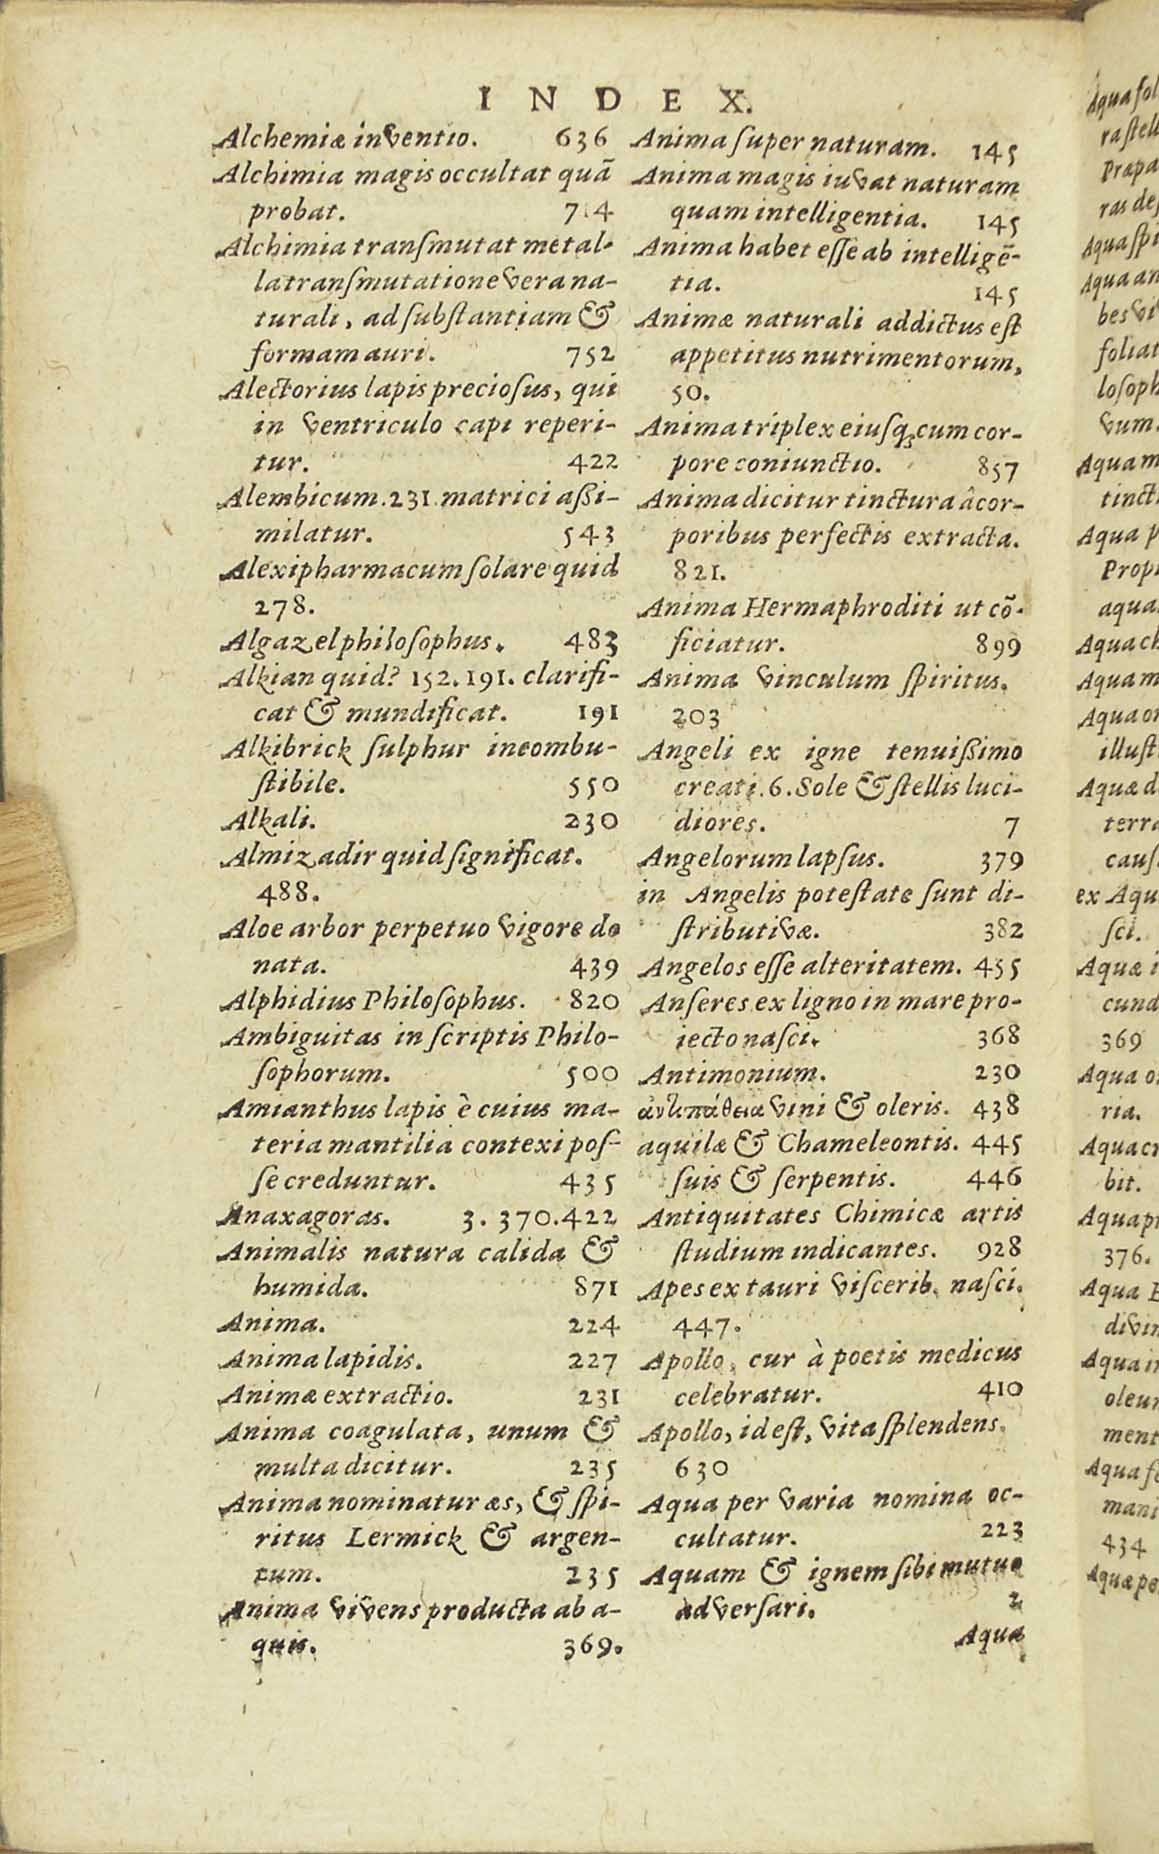 INDEX.
Alchemiæ inventio. 636
Alchimia magis occultat quā
probat. 714
Alchimia tranſmutat metal-
la tranſmutatione vera na-
turali, ad ſubſtantiam &
formam auri. 752
Alectorius lapis precioſus, qui
in ventriculo capi reperi-
tur. 422
Alembicum. 231. matrici aßi-
milatur. 543
Alexipharmacum ſolare quid
278.
Algazel philoſophus. 483
Alkian quid? 152. 191. clarifi-
cat & mundificat. 191
Alkibrick ſulphur incombu-
ſtibile. 550
Alkali. 230
Almizadir quid ſignificat.
488.
Aloe arbor perpetuo vigore do
nata. 439
Alphidius Philoſophus. 820
Ambiguitas in ſcriptis Philo-
ſophorum. 500
Amianthus lapis è cuius ma-
teria mantilia contexi poſ-
ſe creduntur. 435
Anaxagoras. 3. 370. 422
Animalis natura calida &
humida. 871
Anima. 224
Anima lapidis. 227
Animæ extractio. 231
Anima coagulata, unum &
multa dicitur. 235
Anima nominatur æs, & ſpi-
ritus Lermick & argen-
tum. 235
Anima vivens producta ab a-
quis. 369.
Anima ſuper naturam. 145
Anima magis iuvat naturam
quam intelligentia. 145
Anima habet eſſe ab intelligē-
tia. 145
Animæ naturali addictus eſt
appetitus nutrimentorum,
50.
Anima triplex eiuſq; cum cor-
pore coniunctio. 857
Anima dicitur tinctura â cor-
poribus perfectis extracta.
821.
Anima Hermaphroditi ut cō-
ficiatur. 899
Anima vinculum ſpiritus.
203
Angeli ex igne tenuißimo
creati. 6. Sole & ſtellis luci-
diores. 7
Angelorum lapſus. 379
in Angelis poteſtate ſunt di-
ſtributivæ. 382
Angelos eſſe alteritatem. 455
Anſeres ex ligno in mare pro-
iecto naſci. 368
Antimonium. 230
ἀντιπάθεια vini & oleris. 438
aquilæ & Chameleontis. 445
ſuis & ſerpentis. 446
Antiquitates Chimicæ artis
ſtudium indicantes. 928
Apes ex tauri viſcerib. naſci.
447.
Apollo, cur à poetis medicus
celebratur. 410
Apollo, id eſt, vita ſplendens.
630
Aqua per varia nomina oc-
cultatur. 223
Aquam & ignem ſibi mutuo
adverſari. 2
Aqua
Aqua fol
ra ſtell
Præpa
ras deſ
Aqua ſpi
Aqua an
bes vi
foliat
loſoph
vum.
Aqua m
tinct
Aqua p
Prop
aqua
Aqua ch
Aqua m
Aqua or
illuſt
Aquæ d
terra
cauſ
ex Aqu
ſci.
Aquæ i
cund
369
Aqua o
ria.
Aqua cr
bit.
Aqua pr
376.
Aqua
divin
Aqua in
oleun
ment
Aqua ſe
mani
434
Aquæ po